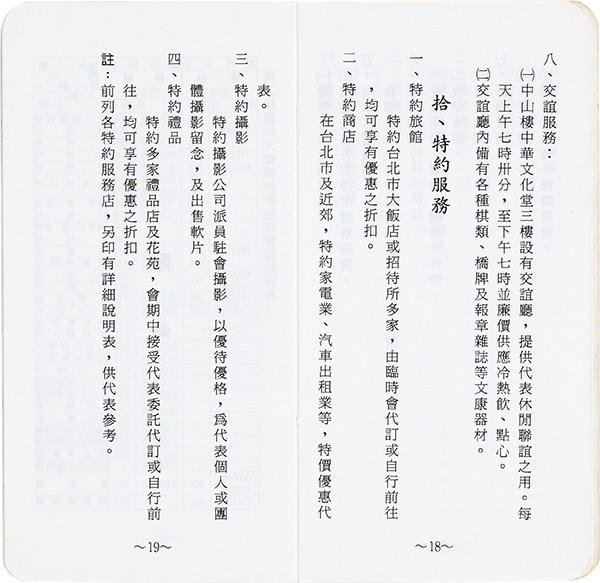 八、交誼服務：
㈠中山樓中華文化堂三樓設有交誼廳，提供代表休閒聯誼之用。每
天上午七時卅分，至下午七時並廉價供應冷熱飲、點心。
㈡交誼廳內備有各種棋類、橋牌及報章雜誌等文康器材。
拾、特約服務
一、特約旅館
特約台北市大飯店或招待所多家，由臨時會代訂或自行前往
，均可享有優惠之折扣。
二、特約商店
在台北市及近郊，特約家電業、汽車出租業等，特價優惠代
～18～
表。
三、特約攝影
特約攝影公司派員駐會攝影，以優待優格，爲代表個人或團
體攝影留念，及出售軟片。
四、特約禮品
特約多家禮品店及花苑，會期中接受代表委託代訂或自行前
往，均可享有優惠之折扣。
註：前列各特約服務店，另印有詳細說明表，供代表參考。
～19～